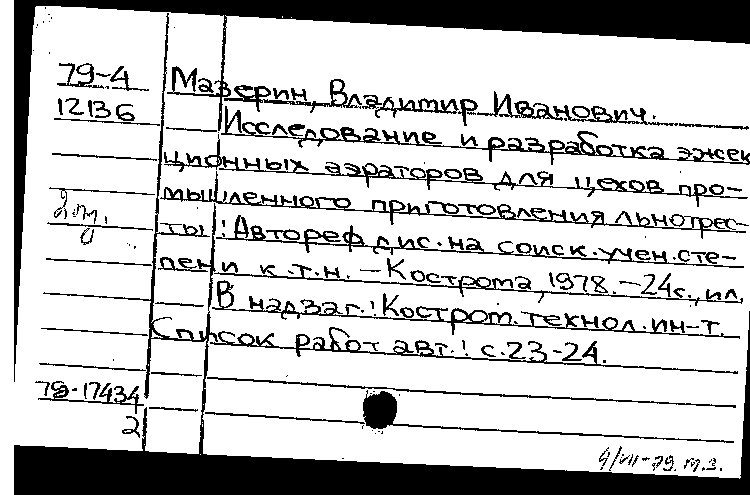 79-4
12136
Мазерин, Владимир Иванович.
Исследование и разработка эжек
ционных аэраторов для цехов про-
мышленного приготовления льнотрес-
ты : Автореф дис. на соиск. учен. сте-
пени к.т.н. – Кострома, 1978. – 24с., ил.
В надзаг.: Костром. технол. ин-т.
Список работ авт.: с. 23-24.
79-17434
2
9/VII-79.